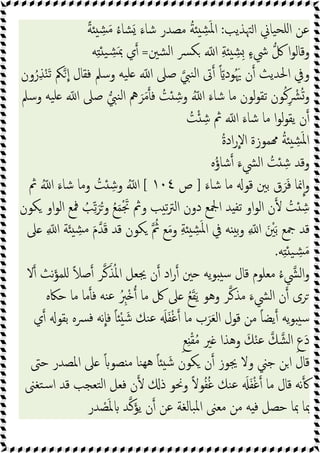 عن اللحياني التهذيب: الْمَشِيئةُ مصدر شاءَ يَشاءُ مَشِيئَةً
وقالوا كلُّ شيءٍ بِشِيئةِ الله بكسر الشين= أي بمَشِيئتِه
وفي الحديث أن يَهُوديّاً أَتى النبيَّ صلى الله عليه وسلم فقال إنَّكم تَنْذِرُون
وتُشْرِكُون تقولون ما شاءَ اللهُ وشِئتُ فأَمَرَهم النبيُّ صلى الله عليه وسلم
أن يقولوا ما شاءَ الله ثم شِئْتُ
الْمَشِيئةُ مهموزة الإِرادةُ
وقد شِئْتُ الشيءَ أَشاؤُه
وإنما فَرَق بين قوله ما شاءَ [ ص ١٠٤ ] اللهُ وشِئتُ وما شاءَ اللهُ ثم
شِئتُ لأن الواو تفيد الجمع دون الترتيب وثم تَجْمَعُ وتُرَتِّبُ فمع الواو يكون
قد جمع بَيْنَ اللهِ وبينه في الْمَشِيئةِ ومَع ثُمَّ يكون قد قَدَّم مشِيئَة اللهِ على
مَشِيئتِه.
والشَّيءُ معلوم قال سيبويه حين أراد أن يجعل الْمُذَكَّر أصلاً للمؤنث ألا
ترى أن الشيءَ مذكَّر وهو يَقَعُ على كل ما أُخْبِرُ عنه فأما ما حكاه
سيبويه أيضاً من قول العَرَب ما أَغْفَلَه عنك شَيْئاً فإنه فسره بقوله أي
دَعِ الشَّكَّ عنْكَ وهذا غير مُقْنِعٍ
قال ابن جني ولا يجوز أن يكون شَيئاً ههنا منصوباً على المصدر حتى
كأنه قال ما أَغْفَلَه عنك غُفُولاً ونحو ذلك لأن فعل التعجب قد استغنى
بما بما حصل فيه من معنى المبالغة عن أن يؤكَّد بالْمَصْدر